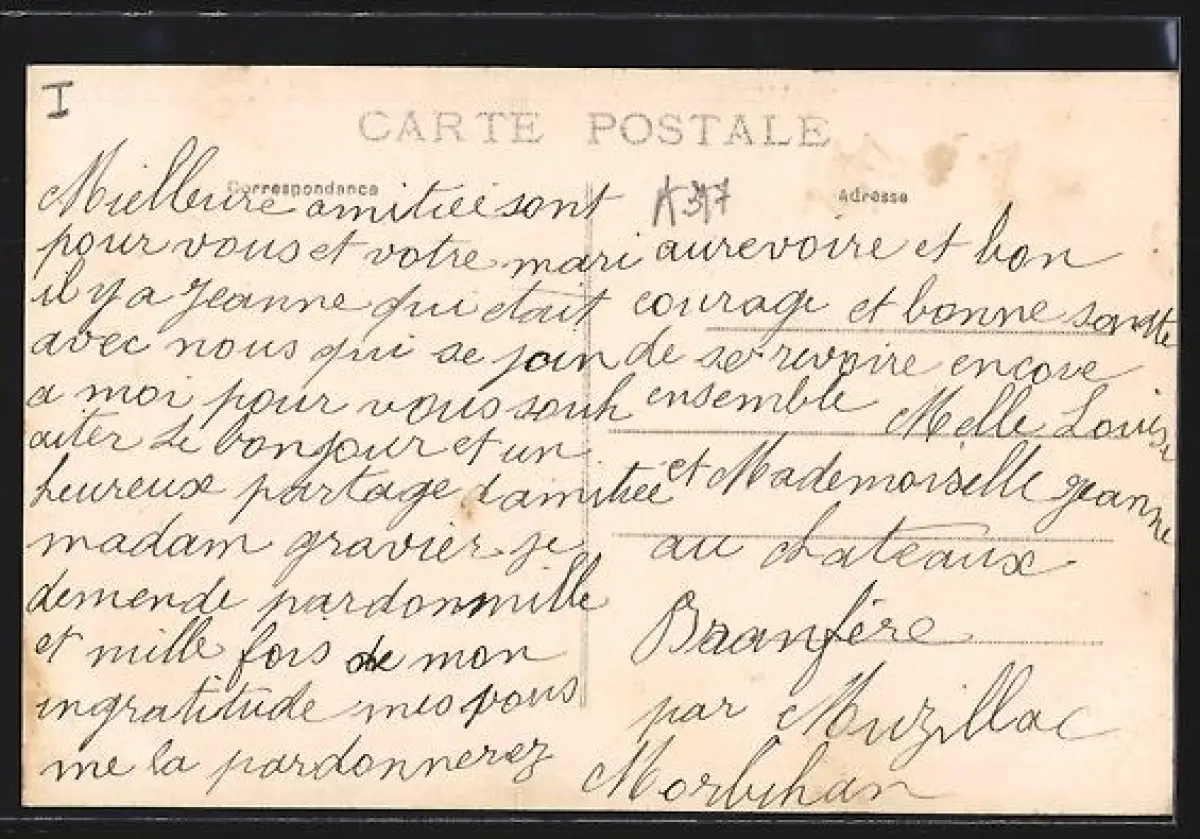 I
CARTE POSTALE
Correspondance
Mielleure amitiée sont
pour vous et votre mari
il y a Jeanne qui était
avec nous qui se join
a moi pour vous souh
aiter le bonjour et un
heureux partage damitiée
madam gravier je
demende pardon mille
et mille fois de mon
ingratitude mes vous
me la pardonnerez
A317
Adresse
aurevoire et bon
courage et bonne santte
de se revoire encore
ensemble Melle Louise
et Mademoiselle jeanne
au chateaux
Branfére
par Muzillac
Morbihan